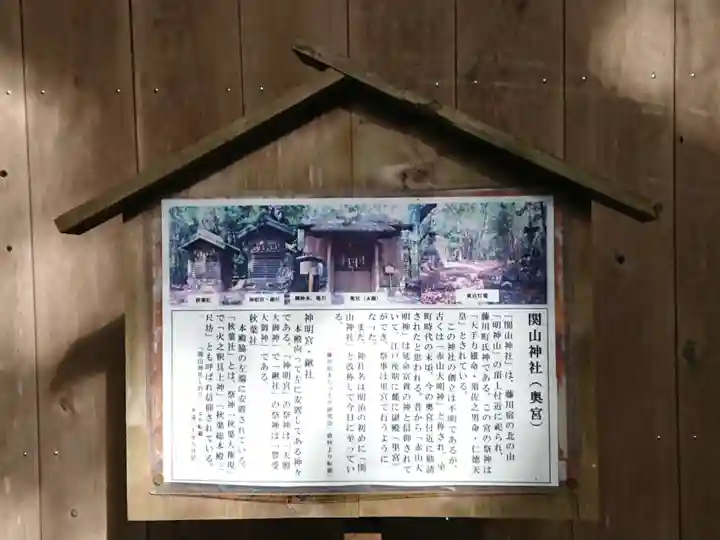 関山神社（奥宮）
「関山神社」は、藤川宿の北の山
「明神山」の頂上付近に祀られ、
藤川町氏神である。この宮の祭神は
「天手力雄命・須佐之男命・仁徳天
皇」とされている。
この神社の創立は不明であるが、
古くは「赤山大明神」と称され、室
町時代の末頃、今の奥宮付近に勧請
されたと思われる。昔から「赤山大
明神」は延命富貴の神と信仰されて
いて、江戸後期に麓に副殿（里宮）
ができ、祭事は里宮で行うように
なった。
また、神社名は明治の初めに「関
山神社」と改称して今日に至ってい
る。
神明宮・楸社
本殿向って左に安置してある神々
である。「神明宮」の祭神は「天照
大御神」で「楸社」の祭神は「豊受
大御神」である。
秋葉社
本殿脇の左端に安置されている。
「秋葉社」とは、祭神「秋葉大権現」
で「火之迦具土神」「秋葉総本殿三
尺坊」とも呼ばれ信仰されている。
秋葉社
奥宮（本殿）
奥宮灯篭